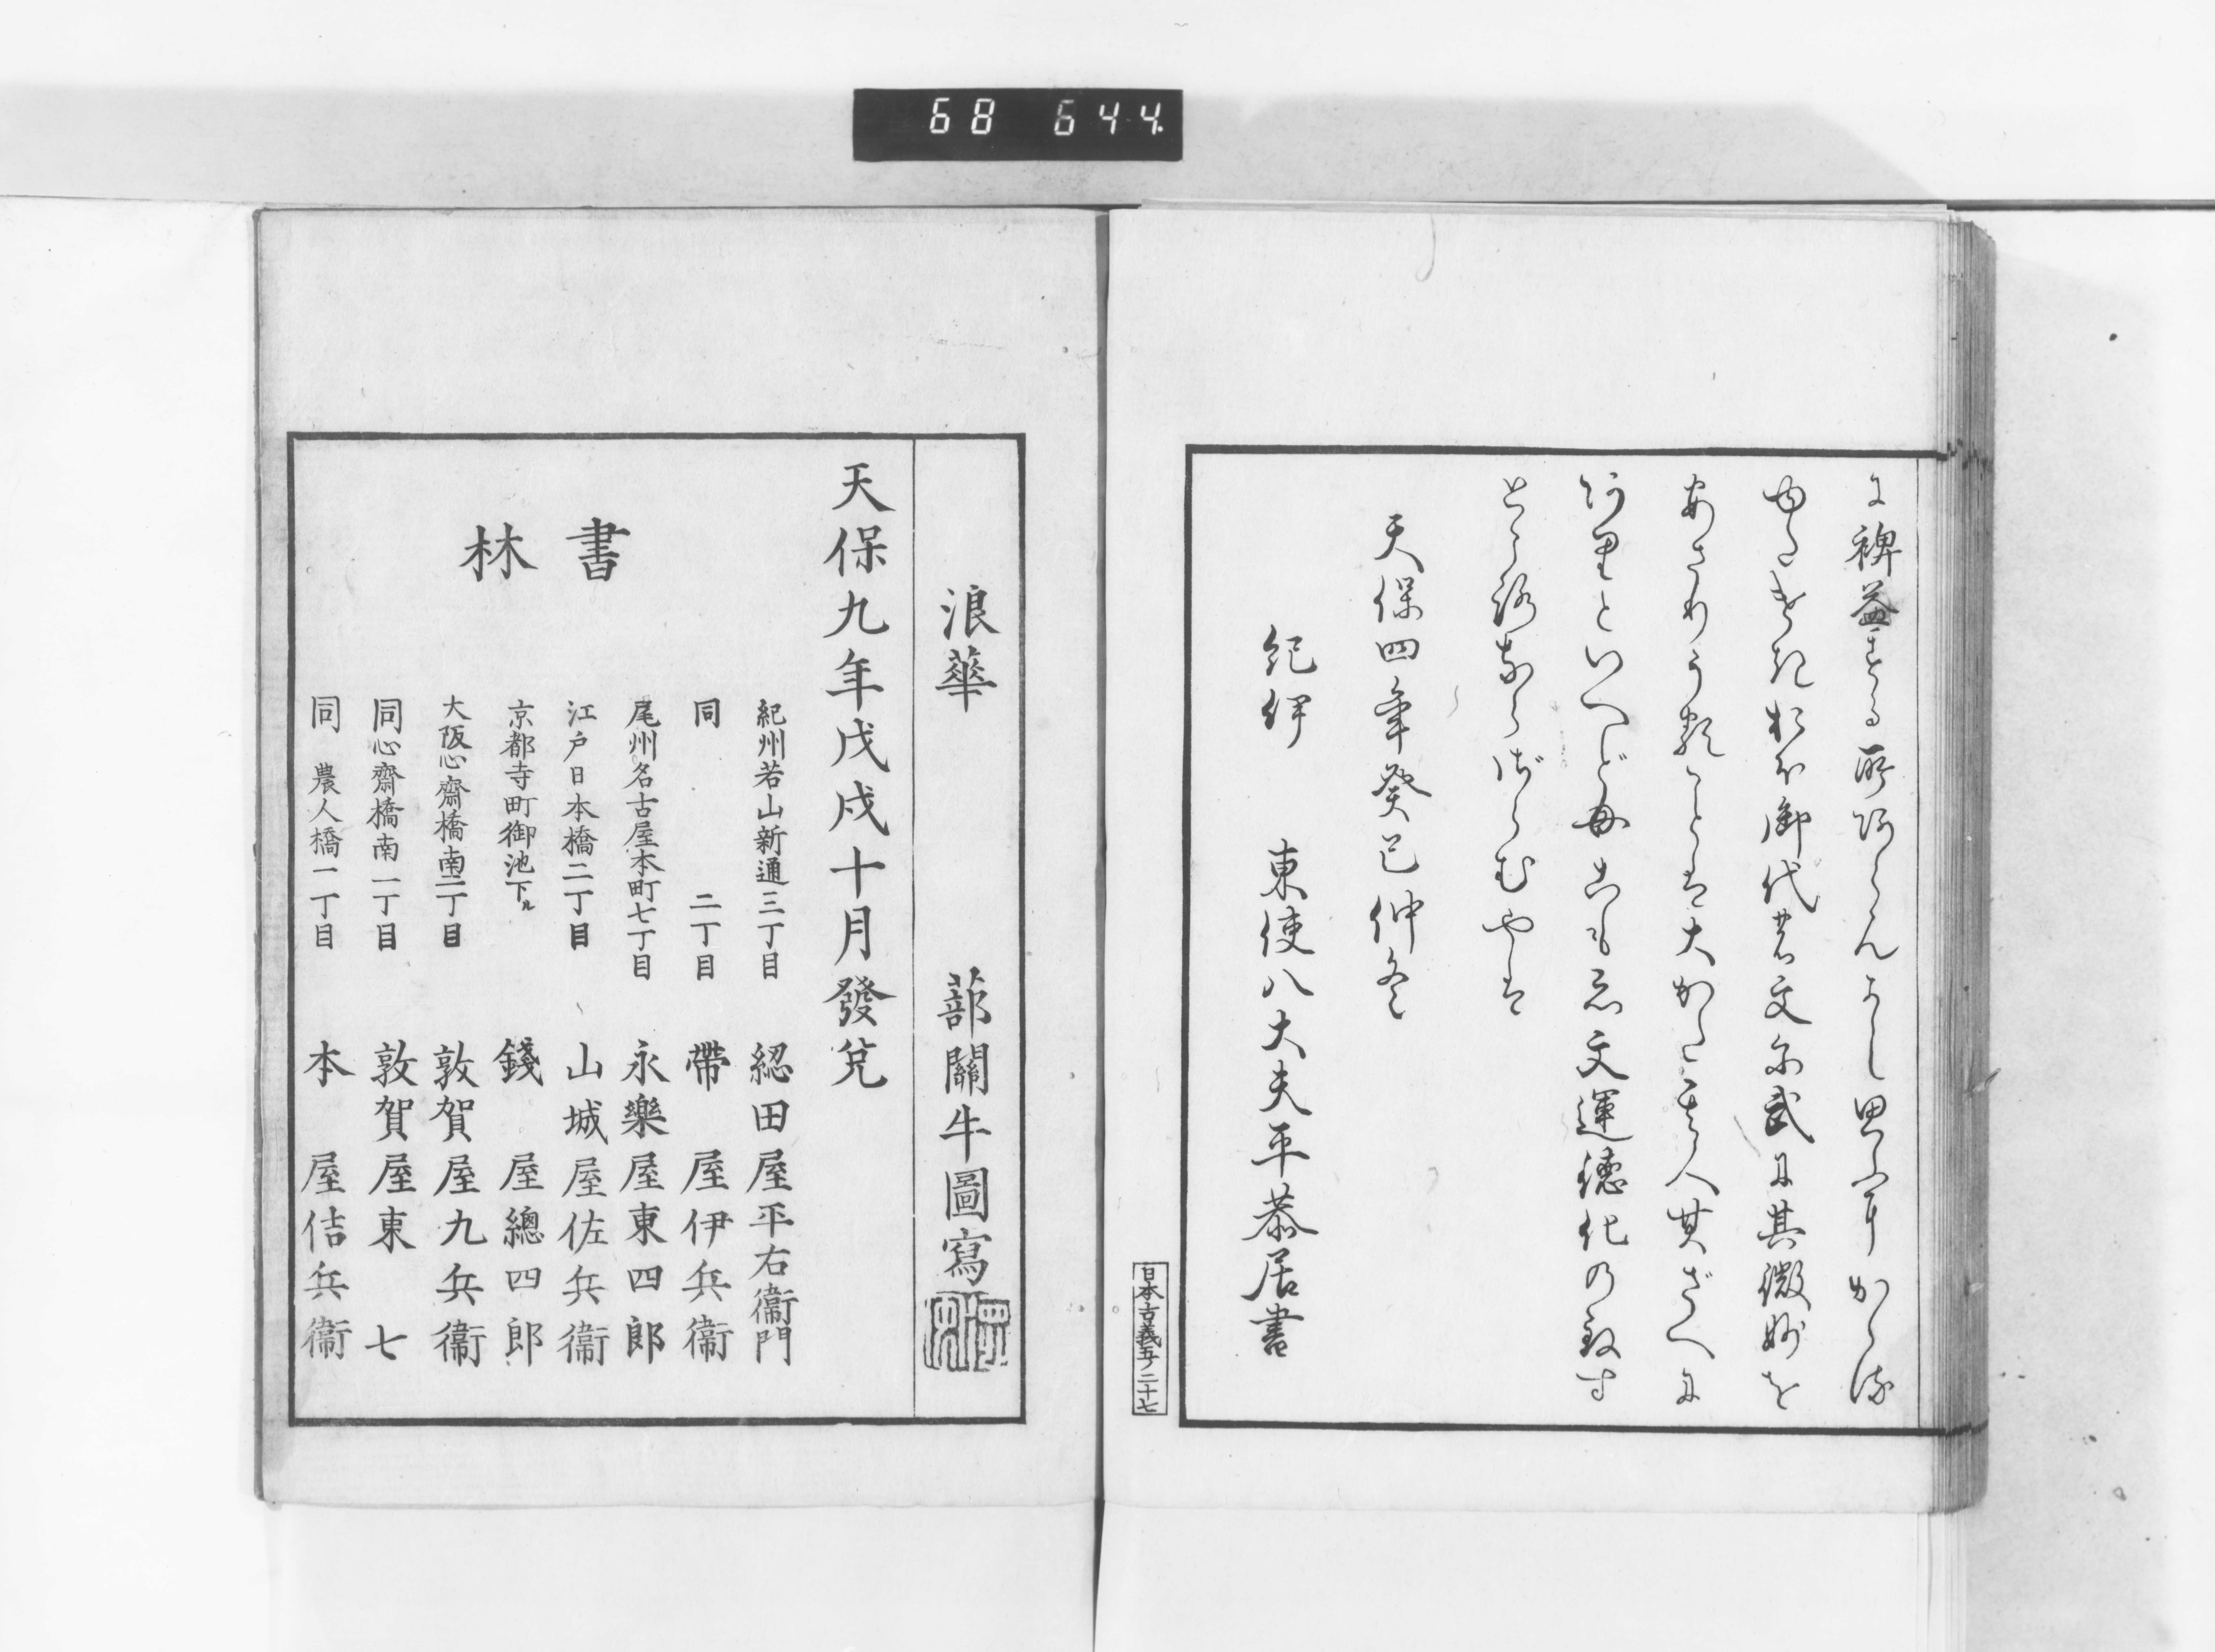 68 644
に裨益する所あらんよし思ふにかゝる
御代の文に武に其微妙を
といへども文運徳化の致す
ところならざらむやは
天保四年癸巳仲冬
紀伊 東使八大夫平恭居書
日本古義五ノ二十七
浪華 蔀關牛圖寫
天保九年戊戌十月發兌
書林
紀州若山新通三丁目 綛田屋平右衞門
同 二丁目 帶屋伊兵衞
尾州名古屋本町七丁目 永樂屋東四郎
江戸日本橋二丁目 山城屋佐兵衞
京都寺町御池下ル 錢屋總四郎
大阪心齋橋南二丁目 敦賀屋九兵衞
同心齋橋南一丁目 敦賀屋東七
同 農人橋一丁目 本屋佶兵衞